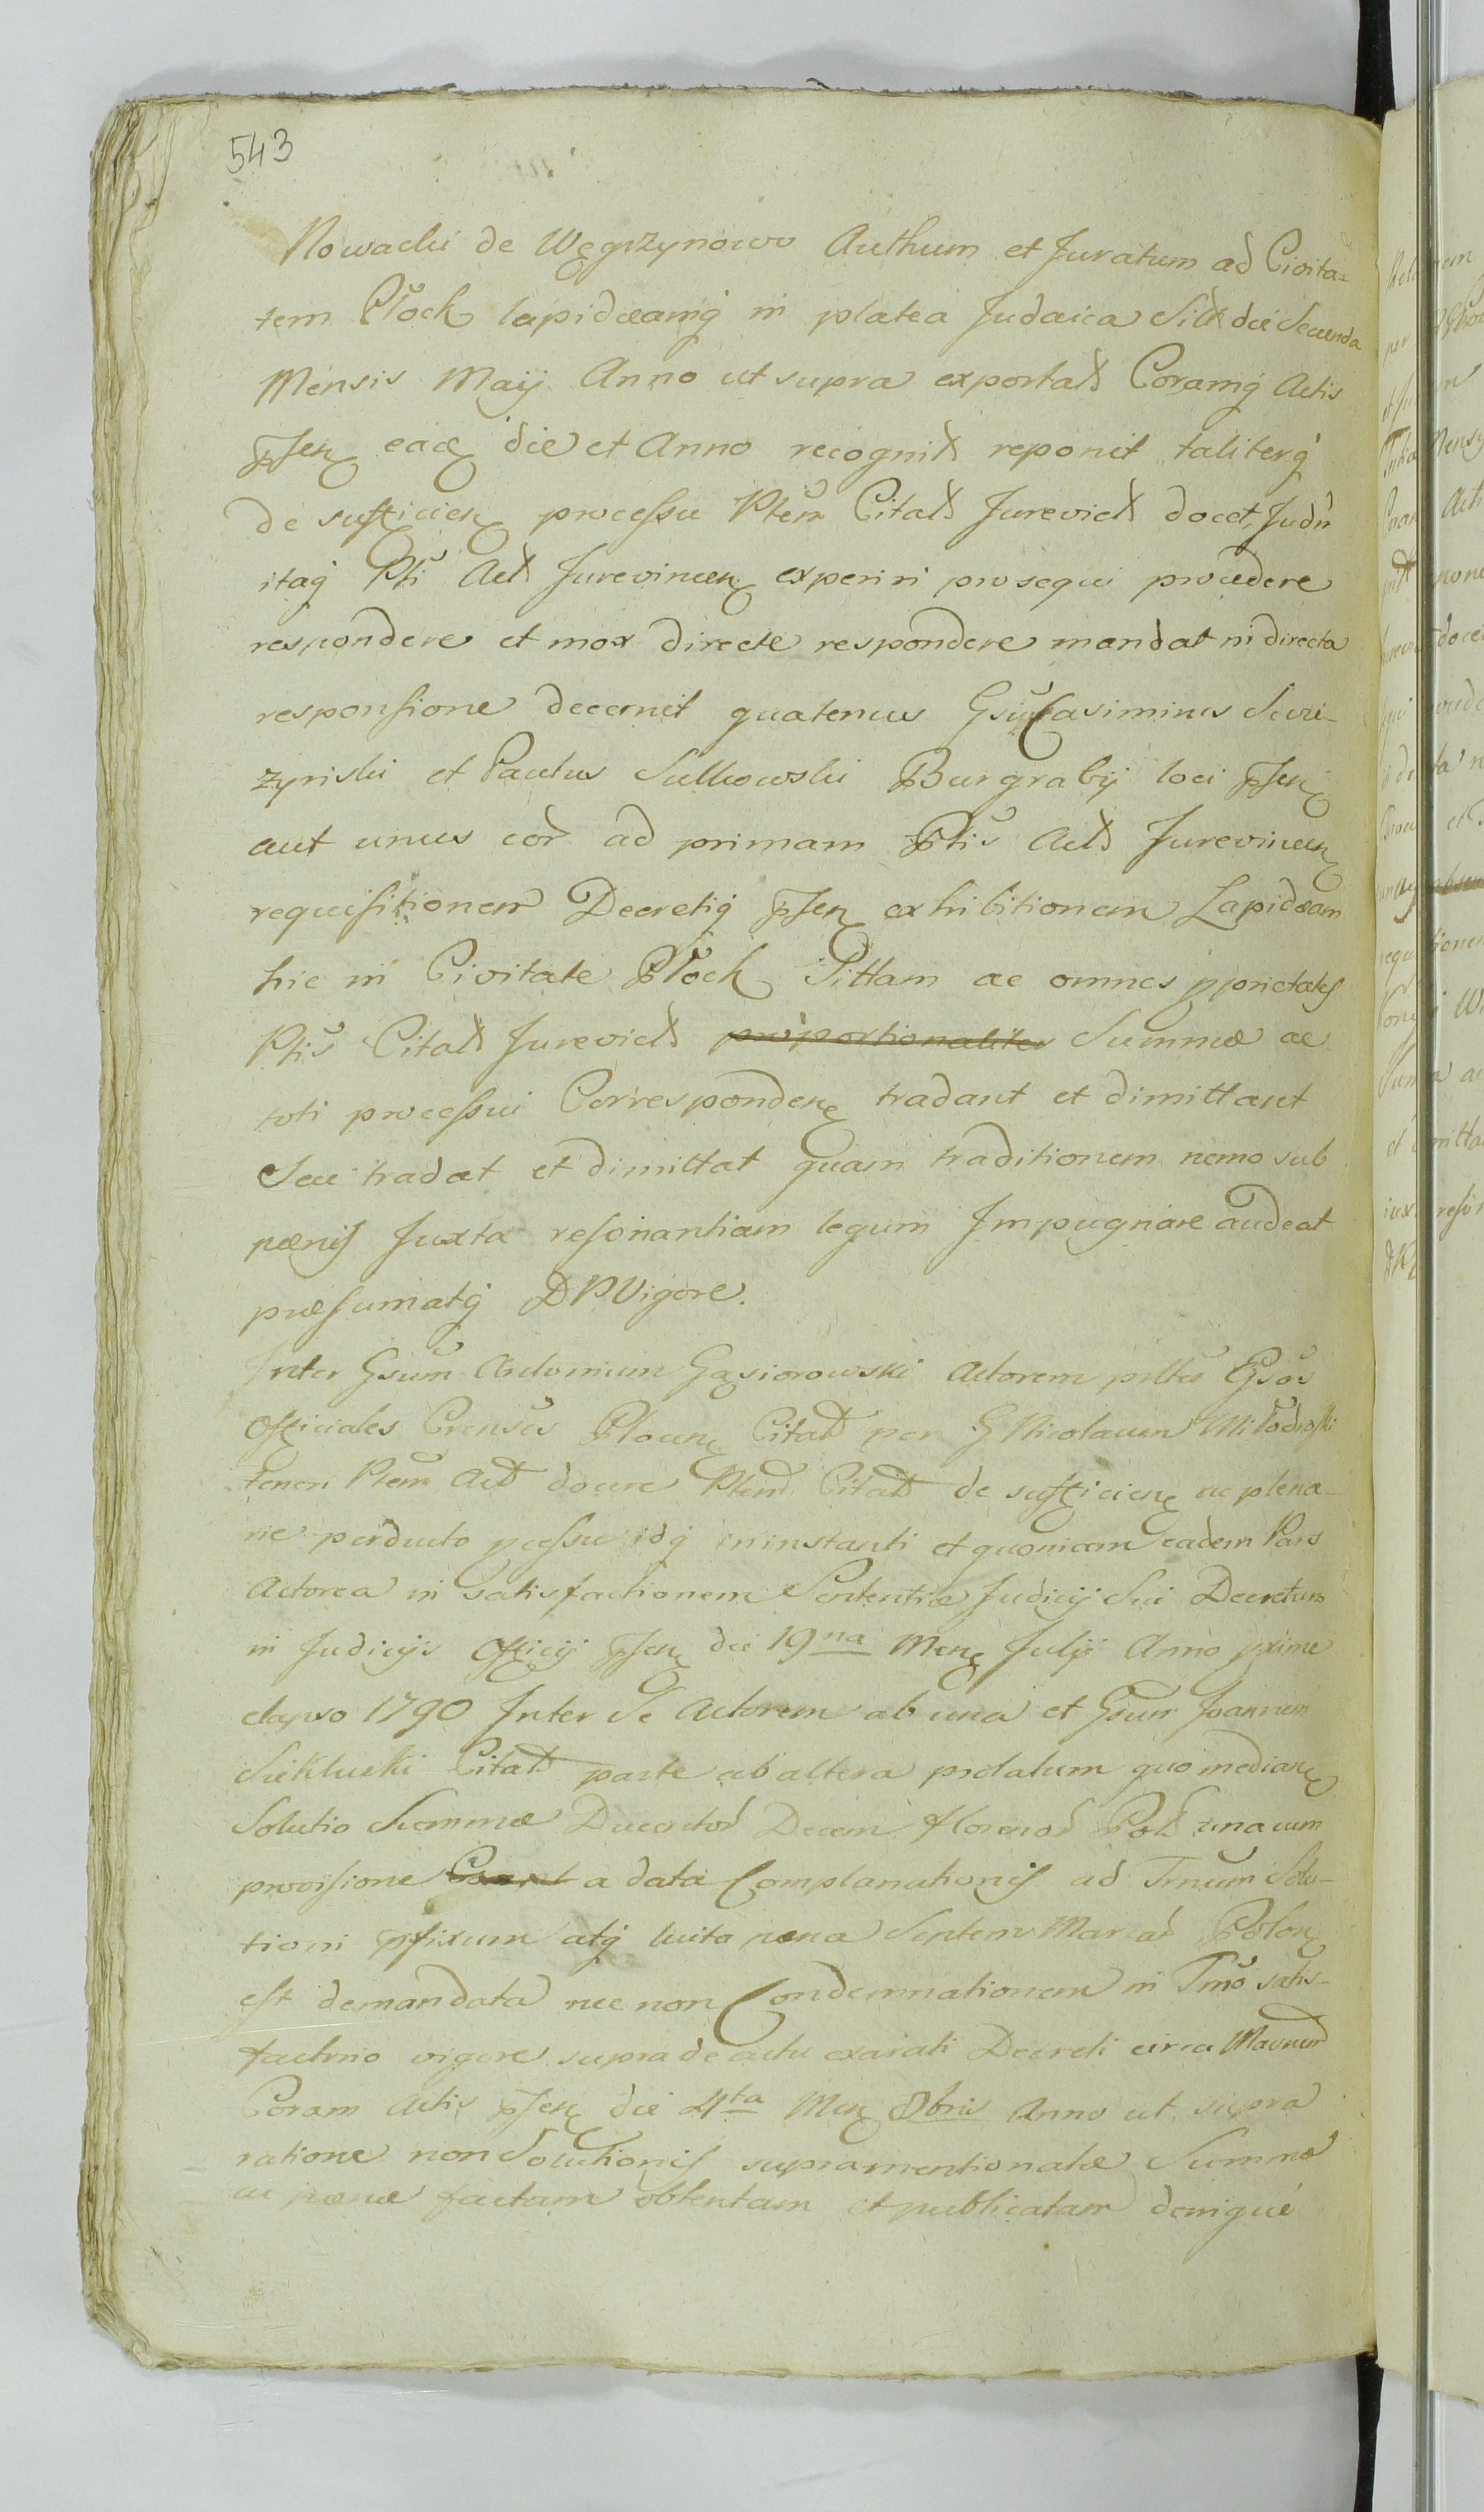 543
Nowacki de Węgrzynowo Authum et Juratum ad Civita-
tem Płock lapidæamq in platea Judaica Sitt die Secunda
Mensis Maij Anno ut supra exportatt Coramq Actis
pntt eade die et Anno recognitt reponit taliterq
de sufficien processu Ptem Citatt Jurevictt docet, Judm
itaq Pti Actt Jurevincen experiri prosequi procedere
respondere et mox directe respondere mandat ni directa
responsione decernit quatenus Gsus Casimirus
et Paulus Sulkowski Burgrabij loci psen
aut unus eor ad primam Ptis Actt Jurevincen
requisitionem Decretiq psen exhibitionem Lapidæam
hic in Civitate Płock Sittam ac omnes pprietates
Ptis Citatt Jurevictt proportionaliter Summæ ac
toti processui Corresponden tradant et dimittant
Seu tradat et dimittat quam traditionem nemo sub
pænis Juxta resonantiam legum Impugnare audeat
præsumatq D P Vigore.
Inter Gsum Antonium Gąsiorowski Actorem pltus Gsos
Officiales Crenses Plocen Citatt per G Nicolaum
teneri Ptem Actt docere Ptem Citatt de sufficien ac plena-
rie perducto pcessu idq in instanti et quoniam eadem Pars
Actorea in satisfactionem Sententiæ Judicij Sui Decretum
in Judicijs Officij psen die 19na Men Julij Anno pxime
elapso 1790 Inter Se Actorem ab una et Gsum Joannem
Siekłucki Citatt parte ab altera prolatum quo median
Solutio Summæ Ducentor Decem florenor Pol una cum
provisione a data Complanationis ad Tmum Solu-
tioni pfixum atq luita pæna Septem Marcar Polon
est demandata nec non Condemnationem in Tmo satis-
factorio vigore supra de actu exarati Decreti circa
Coram Actis psen die 4ta Men 8bris Anno ut supra
ratione non Solutionis supramentionatæ Summæ
ac pænæ factam obtentam et publicatam denique